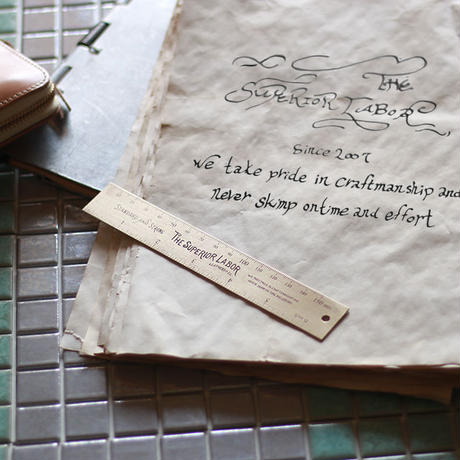 The
Superior Labor
Since 2007
We take pride in craftmanship and
never skimp ontime and effort
Standard and Strong
The Superior Labor